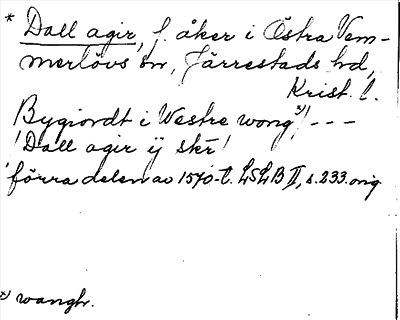 * Dall agir, f. åker i Östra Vem-
merlövs sn, Järrestads hd,
Krist. l.
Bygiordt i Westre wong x) ---
! Dall agir ij skr̄ !
förra delen av 1570-t. LSLB II, s. 233. orig.
x) wanghr.